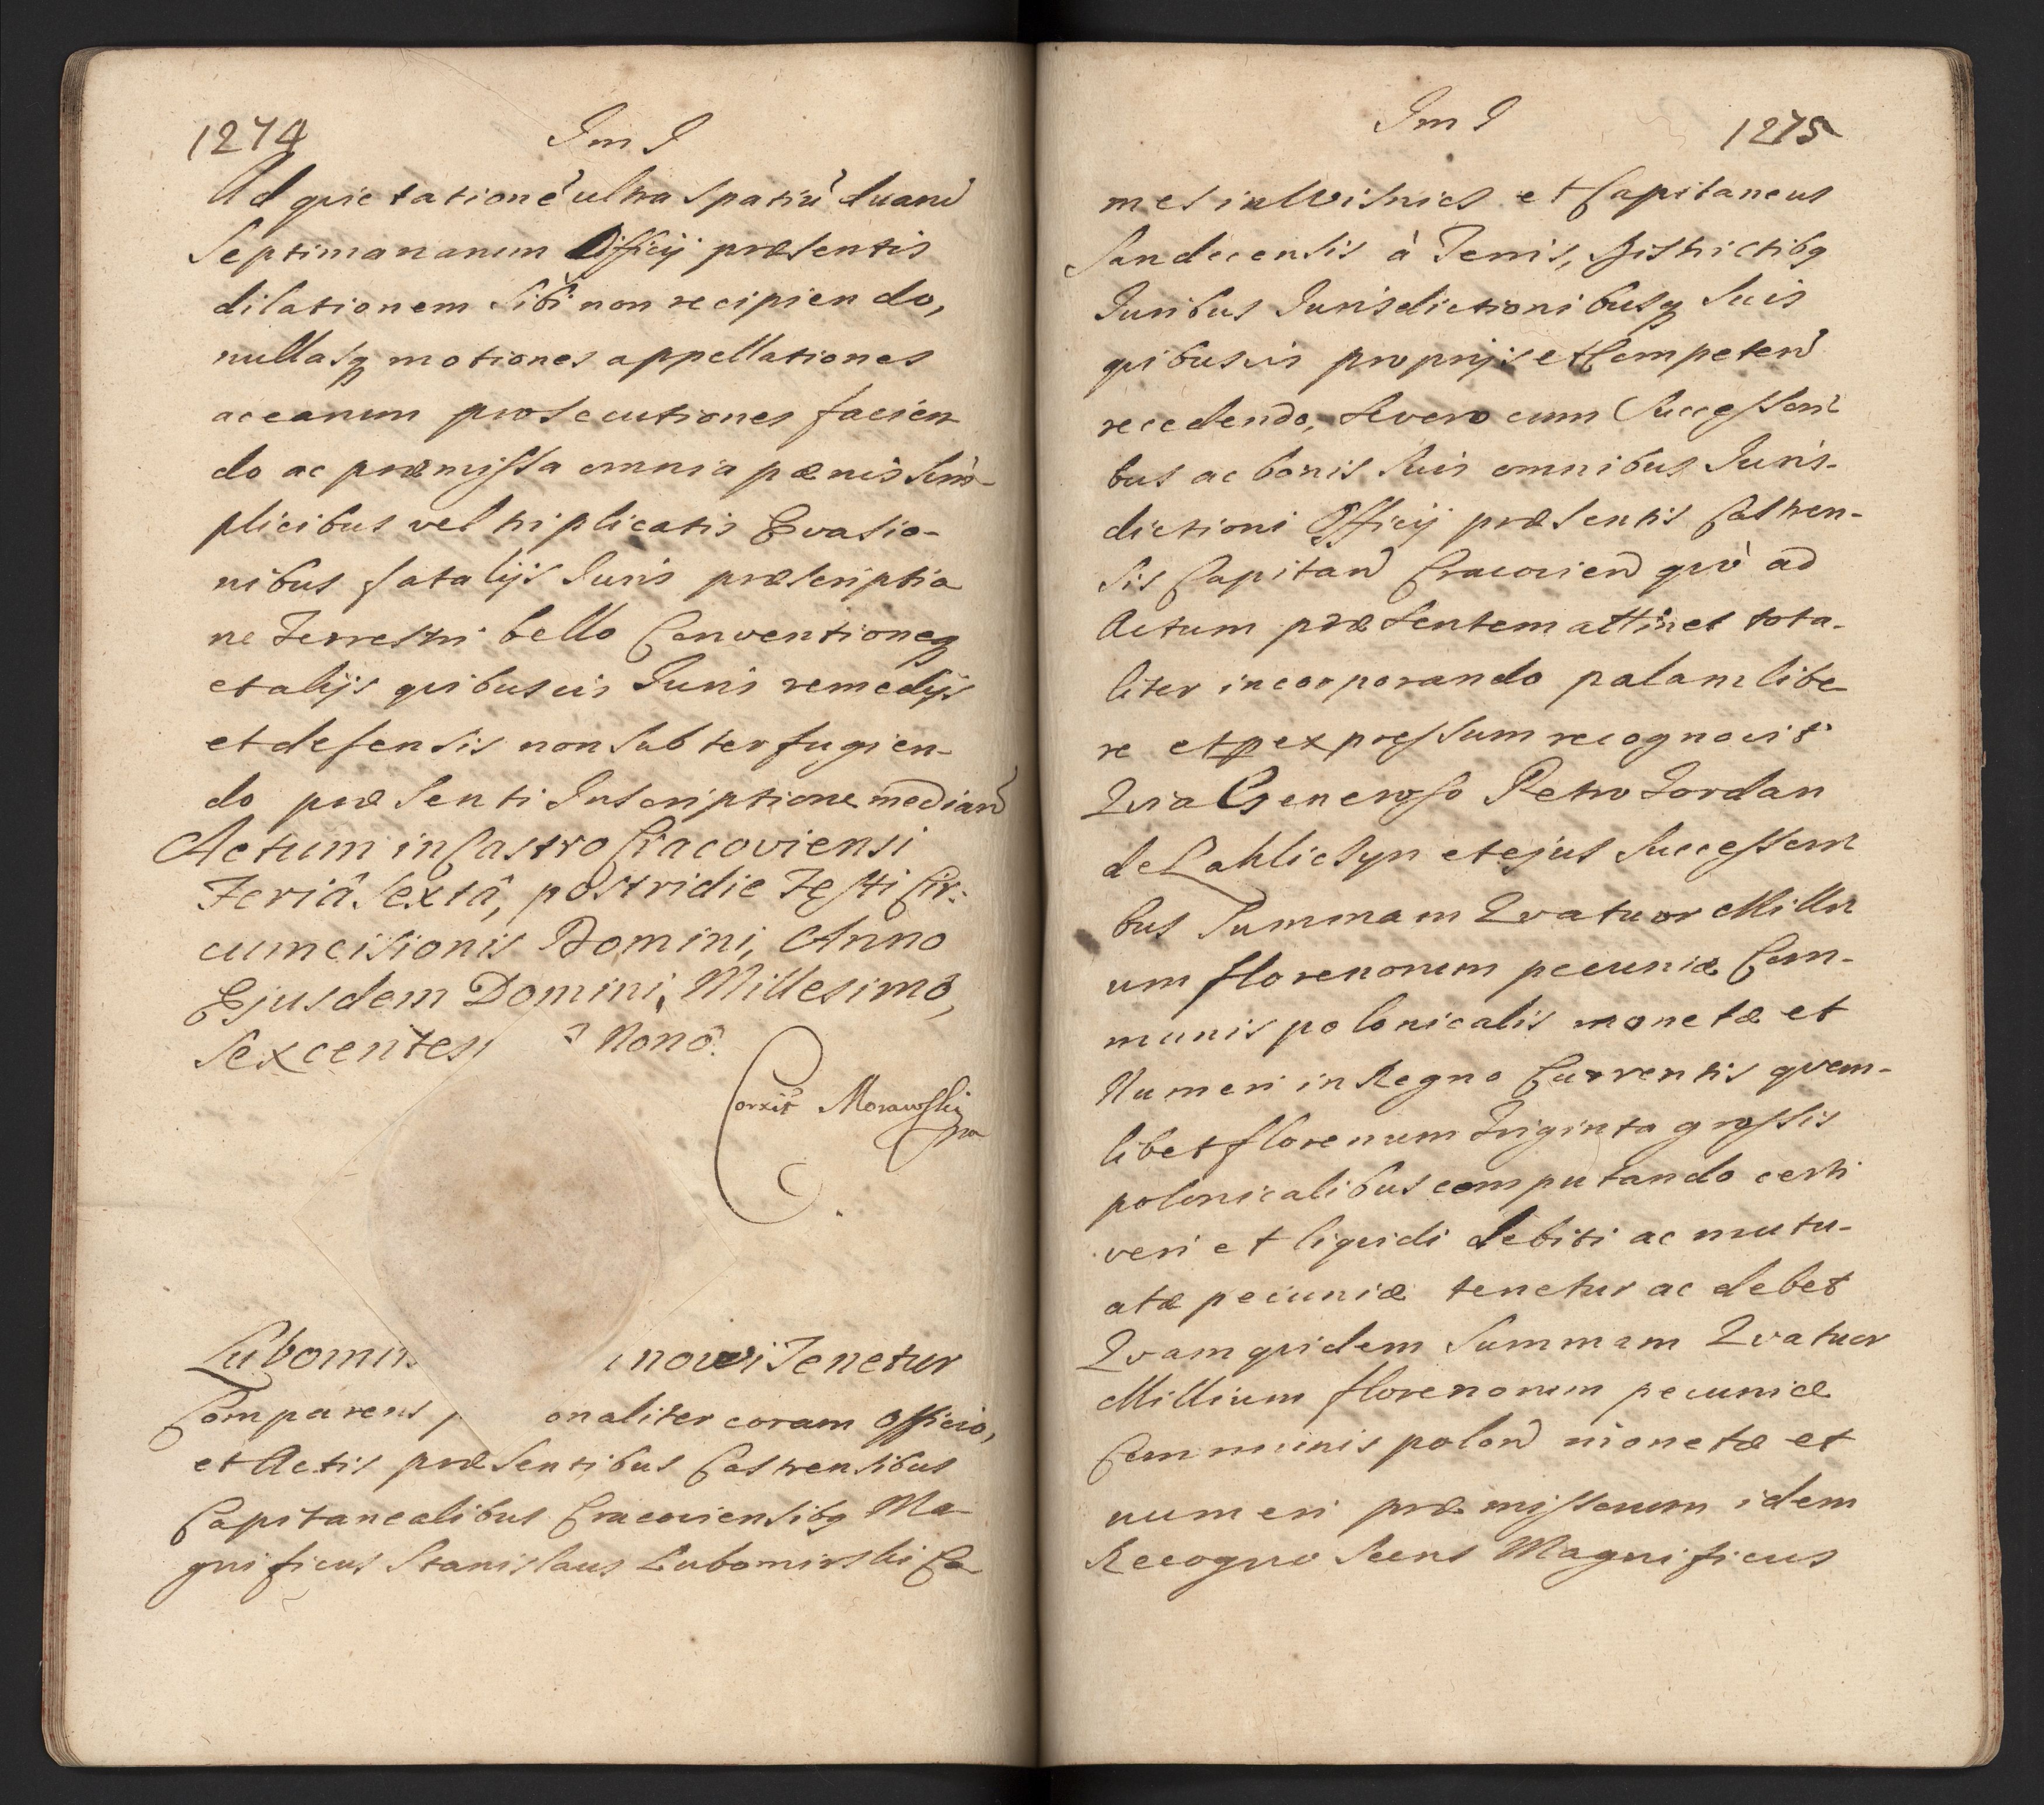 1274
Im I
Ad quietatione ultra spatiu duaru
Septimanarum Officij præsentis
dilationem sibi non recipiendo,
nullasq motiones appellationes
ac earum prosecutiones facien
do ac præmissa omnia pænis sim-
plicibus vel triplicatis Evasio-
nibus fatalijs Juris præscriptio
ne Terrestri bello Conventioneq
et alijs quibusvis Juris remedijs
et defensis non subterfugien-
do præsenti Inscriptione median
Actum in Castro Cracoviensi
Feriâ Sextâ, postridie Festi Cir:
cumcisionis Domini, Anno
Ejusdem Domini, Millesimô,
Sexcentes Nonô.
Corxit Morawski
Lubomir nowi Tenetur
Comparens onaliter coram Officio,
et Actis præsentibus Castrensibus
Capitanealibus Cracoviensibq Ma-
gnificus Stanislaus Lubomirski Co
Im I
1275
mes in Wisnicz et Capitaneus
Sandecensis à Terris, Districtibq
Juribus Jurisdictionibusq suis
quibusvis proprijs et Competen
recedendo, se vero cum Successori
bus ac bonis suis omnibus Juris-
dictioni Officij præsentis Castren-
sis Capitan Cracovien quò ad
Actum præsentem attinet tota-
liter incorporando palam libe
re et p expressum recognovit
Quia Generoso Petro Jordan
de Zakliczyn et ejus Successori
bus Summam Quatuor Milli
um florenorum pecuniæ Com-
munis polonicalis monetæ et
Numeri in Regno Currentis quem-
libet florenum Triginta grossis
polonicalibus computando certi
veri et liquidi debiti ac mutu-
atæ pecuniæ tenetur ac debet
Quam quidem Summam Quatuor
Millium florenorum pecuniæ
Communis polon monetæ et
numeri præmissorum idem
Recognoscens Magnificus